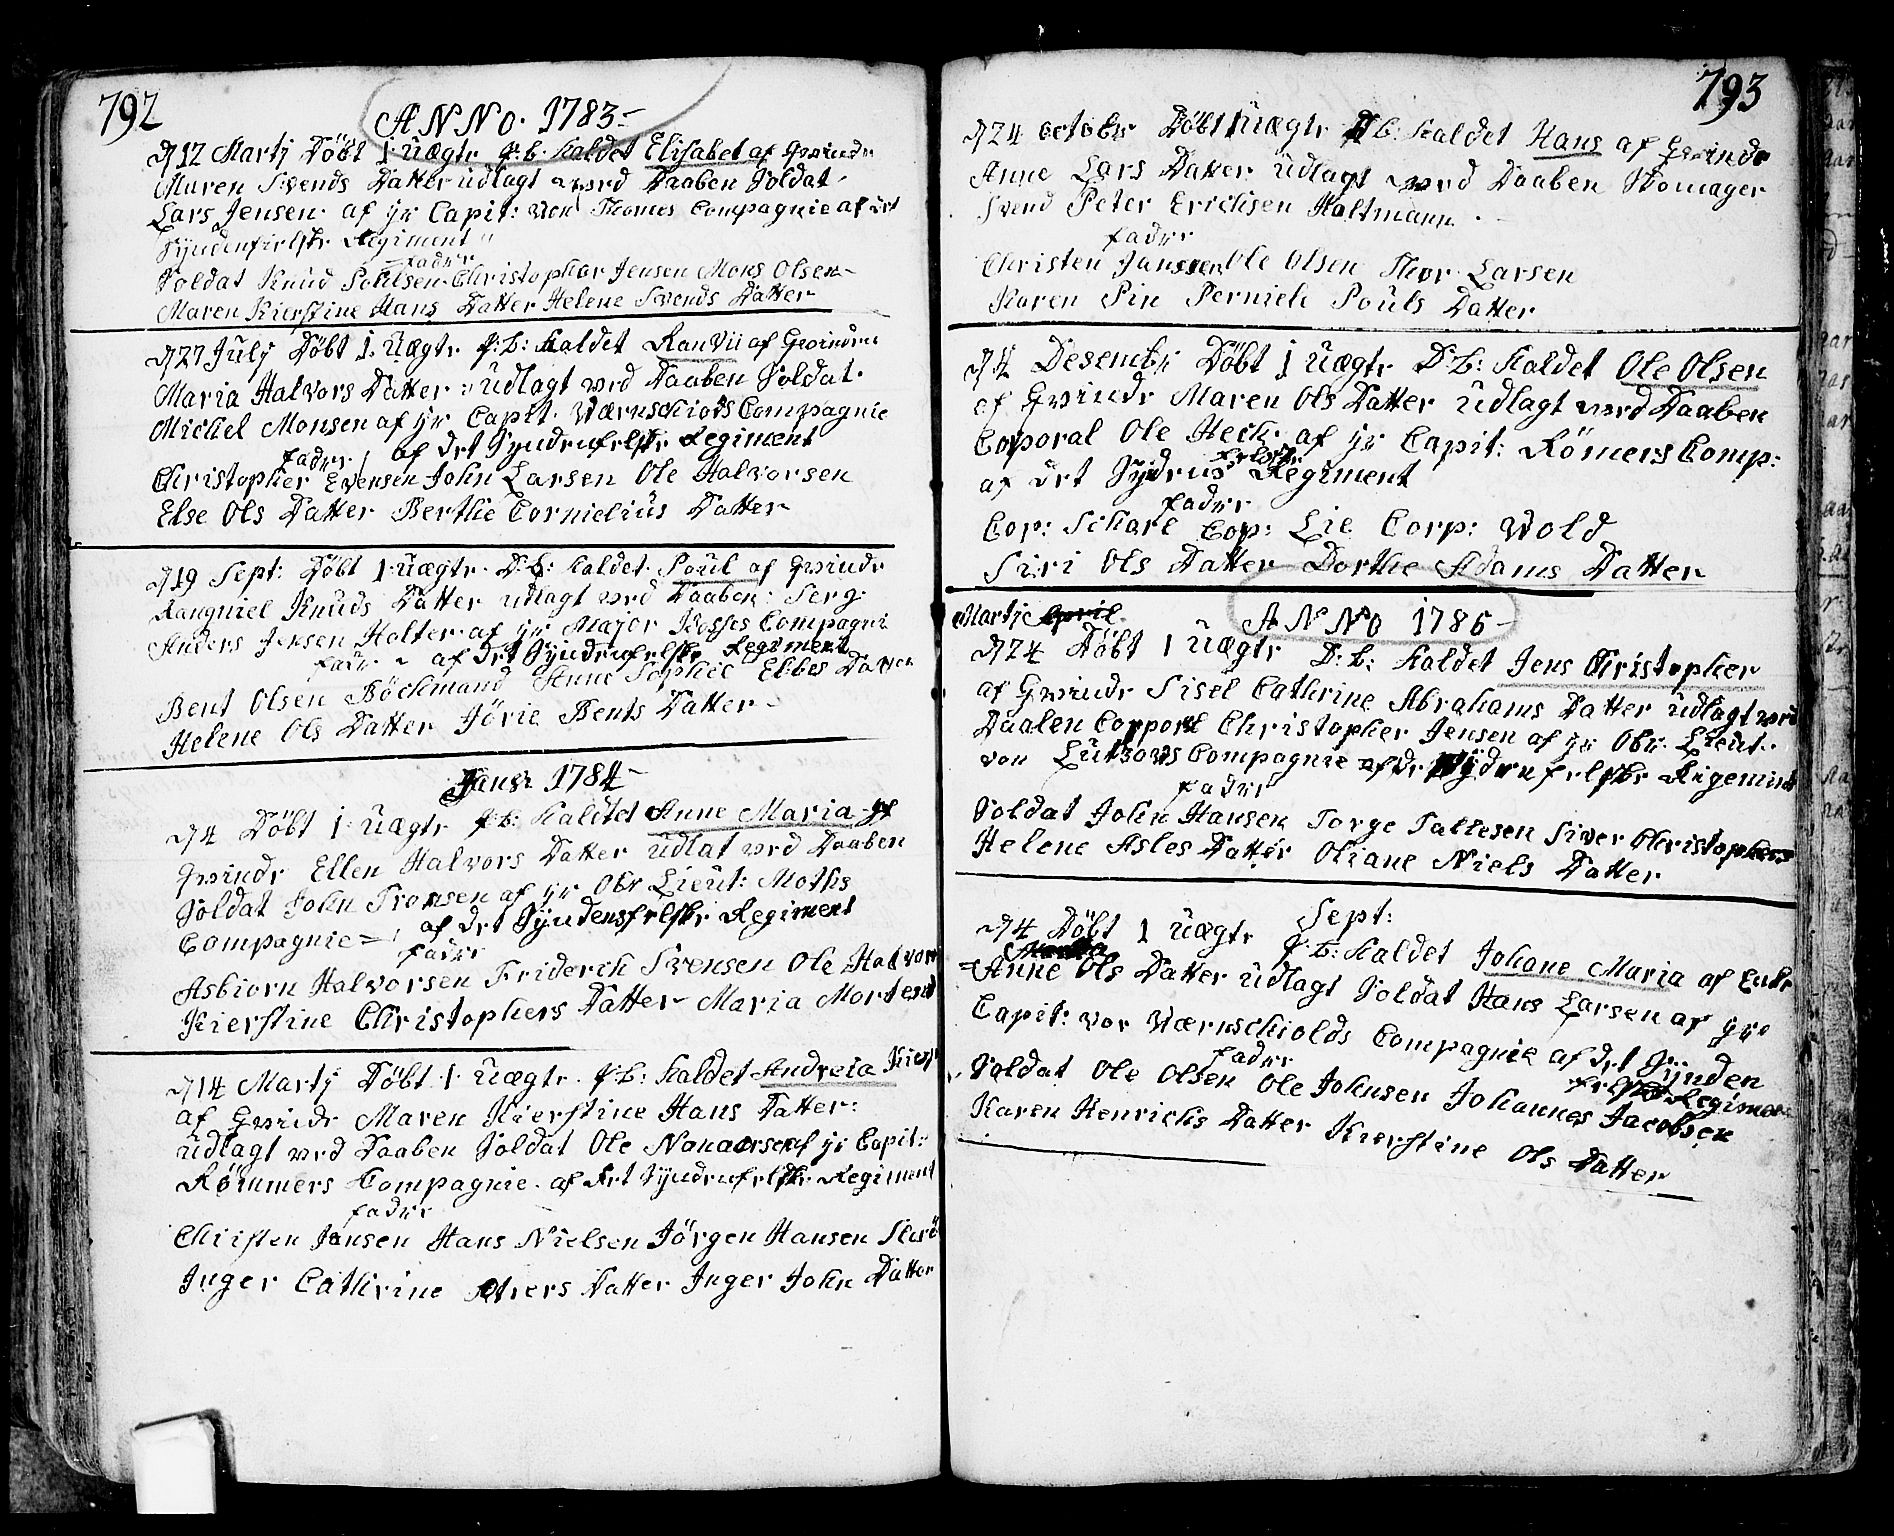 792
ANNO. 1783
17 Martj Döbt 1 Uægte P: B: kaldet Elisabet af Qvinde
Maren Svends Datter udlagt ved Daaben Soldat
Lars Jensen af hr Capit: von Thomes Compagnie af det
Syndenfielske Regiment
fadere
Soldat Knud Christopher Jensen Mons Olsen
Maren Kierstine Hans Datter Helene Svends Datter
27 July Döbt 1 Uægte P: B: kaldet af Qvinden
Maria Halvors Datter udlagt ved Daaben Soldat
Michel Monsen af hr Capit. Compagnie
af det Syndenfielske Regiment
fadere
Christopher Evensen John Larsen Ole Halvorsen
Else Ols Datter Berthe Cornielius Datter
19 Sept: Döbt 1 Uægte D: B: kaldet Poul af Qvinde
Rangniel Knuds Datter udlagt ved Daaben Serg:
Anders Jensen Holter af hr Major Compagni
af det Syndenfielske Regiment
fadere
Bent Olsen Böckmand Anne Sophie Ebbes Datter
Helene Ols Datter Jörie Bents Datter
Janr 1784
4 Döbt 1 Uægte P: B: kaldet Anne Maria af
Qvinde Ellen Halvors Datter udlat ved Daaben
Soldat John Tronsen af hr Obr Lieut: Moths
Compagnie af det Syndensfielske Regiment
fadere
Asbiorn Halvorsen Friderich Svensen Ole Halvor
Kierstine Christophers Datter Maria Mortens
14 Martj Döbt 1 Uægte P: B: kaldet Andreia Kierst
af Qvinde Maren Kierstine Hans Datter:
udlagt ved Daaben Soldat Ole af hr Capit:
Römmers Compagnie af det Syndenfielske Regiment
fadere
Christen Jansen Hans Nielsen Jörgen Hansen
Inger Cathrine Datter Inger John Datter
793
24 octobr Döbt 1 Uægte D: B: kaldet Hans af Qvinde
Anne Lars Datter udlagt ved Daaben Skomager
Svend Peter Erichsen Holtmann
fadere
Christen Janssen Ole Olsen Thor Larsen
Karen Perniele Pouls Datter
4 Desembr Döbt 1 Uægte D: B: kaldet Ole Olsen
af Qvinde Maren Ols Datter udlagt ved Daaben
Corporal Ole Heck af hr Capit: Römers Comp:
af det Syden fielske Regiment
fadere
Cop: Schare Cop: Lie Corp: Wold
Siri Ols Datter Dorthe Adams Datter
Martje April
ANNO 1786
24 Döbt 1 Uægte D: B: kaldet Jens Christopher
af Qvinde Sisel Cathrine Abrahams Datter udlagt ved
Daaben Copporl Christopher Jensen af hr Obr: Lieut.
von Lutzows Compagnie af de Sydenfielske Rigement
fadere
Soldat John Hansen Torge Tallesen Siver Christophers
Helene Asles Datter Oliane Niels Datter
Sept:
4 Döbt 1 Uægte P: B: kaldet Johane Maria af Enke
Anne Ols Datter udlagt Soldat Hans Larsen af hr
Capit: vor Værnschiolds Compagnie af det Synden
fielske Regiment
fadere
Soldat Ole Olsen Ole Johnsen Johannes Jacobsen
Karen Henrichs Datter Kierstine Ols Datter